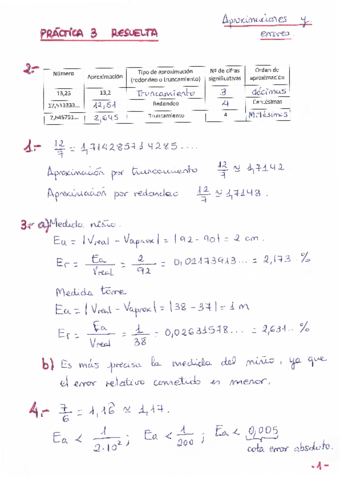 Aproximaciones y
errores
PRÁCTICA 3 RESUELTA
2.-
Número Aproximación Tipo de aproximación (redondeo o truncamiento) Nº de cifras significativas Orden de aproximación
13,25 13,2 Truncamiento 3 décimas
12,51 Redondeo 4 Centésimas
2,645 Truncamiento 4 Milésimas
1.- 12/7 = 1,714285714285....
Aproximación por truncamiento 12/7 ≈ 1,7142
Aproximación por redondeo 12/7 ≈ 1,7143.
3.- a) Medida niño.
Ea = |Vreal - Vaprox| = |92-90| = 2 cm.
Er = Ea/Vreal = 2/92 = 0,02173913... = 2,173..%
Medida torre
Ea = |Vreal - Vaprox| = |38-37| = 1 m
Er = Ea/Vreal = 1/38 = 0,02631578... = 2,631..%
b) Es más precisa la medida del niño, ya que
el error relativo cometido es menor.
4.- 7/6 = 1,16̂ ≈ 1,17.
Ea < 1/2·10² ; Ea < 1/200 ; Ea < 0,005
cota error absoluto.
-1-